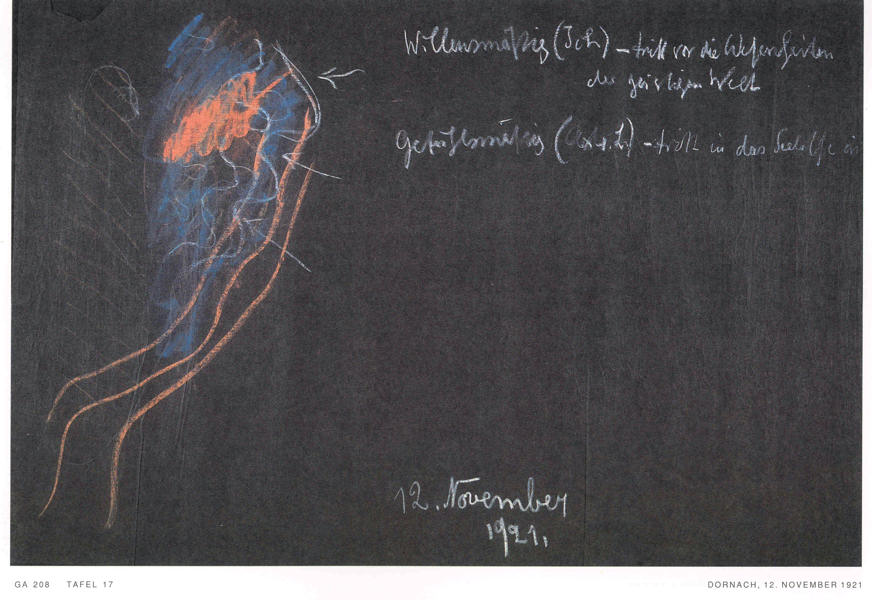 Willensmäßig (Ich) – tritt vor die Wesenheiten
der geistigen Welt
Gefühlsmäßig (Astr. L.) – tritt in das
12. November
1921.
GA 208 TAFEL 17
DORNACH, 12. NOVEMBER 1921